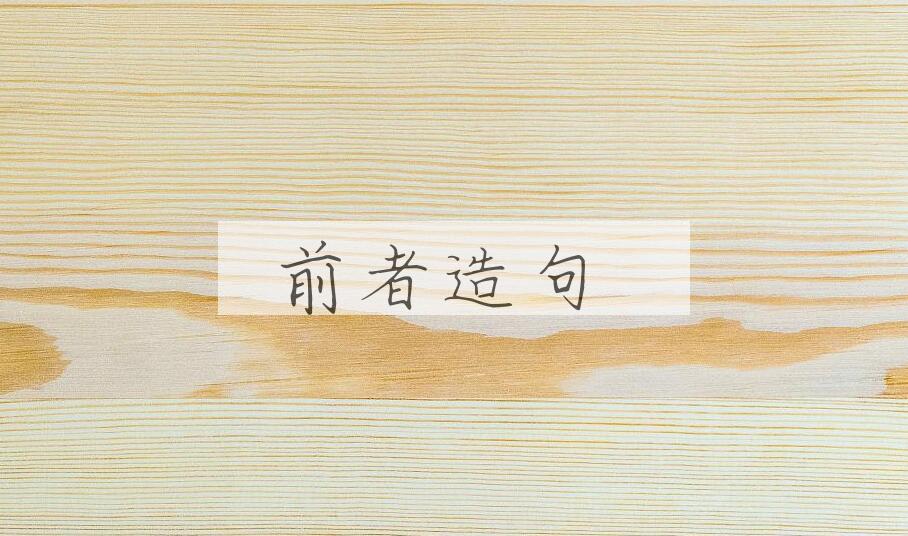 前者造句